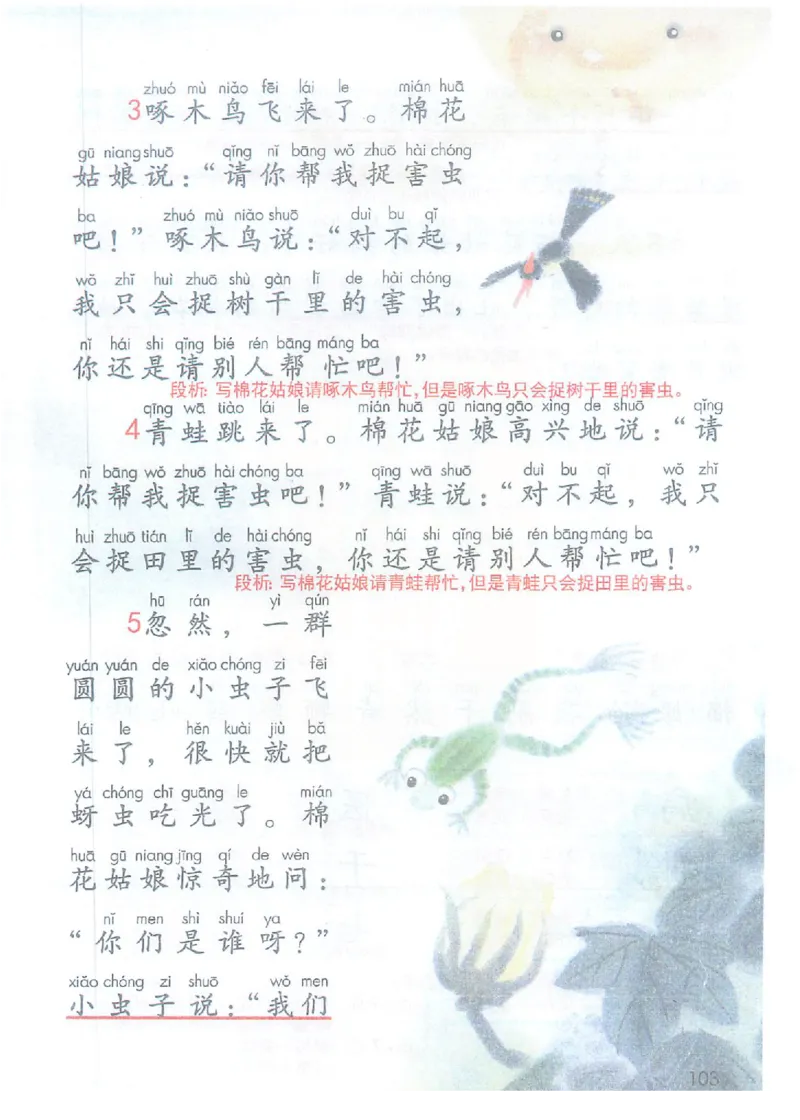 zhuó mù niǎo fēi lái le mián huā
3啄木鸟飞来了。棉花
gū niang shuō qǐng nǐ bāng wǒ zhuō hài chóng
姑娘说：“请你帮我捉害虫
ba zhuó mù niǎo shuō duì bu qǐ
吧！”啄木鸟说：“对不起，
wǒ zhǐ huì zhuō shù gàn lǐ de hài chóng
我只会捉树干里的害虫，
nǐ hái shi qǐng bié rén bāng máng ba
你还是请别人帮忙吧！”
段析：写棉花姑娘请啄木鸟帮忙，但是啄木鸟只会捉树干里的害虫。
qīng wā tiào lái le mián huā gū niang gāo xìng de shuō qǐng
4青蛙跳来了。棉花姑娘高兴地说：“请
nǐ bāng wǒ zhuō hài chóng ba qīng wā shuō duì bu qǐ wǒ zhǐ
你帮我捉害虫吧！”青蛙说：“对不起，我只
huì zhuō tián lǐ de hài chóng nǐ hái shi qǐng bié rén bāng máng ba
会捉田里的害虫，你还是请别人帮忙吧！”
段析：写棉花姑娘请青蛙帮忙，但是青蛙只会捉田里的害虫。
hū rán yì qún
5忽然，一群
yuán yuán de xiǎo chóng zi fēi
圆圆的小虫子飞
lái le hěn kuài jiù bǎ
来了，很快就把
yá chóng chī guāng le mián
蚜虫吃光了。棉
huā gū niang jīng qí de wèn
花姑娘惊奇地问：
nǐ men shì shuí ya
“你们是谁呀？”
xiǎo chóng zi shuō wǒ men
小虫子说：“我们
103